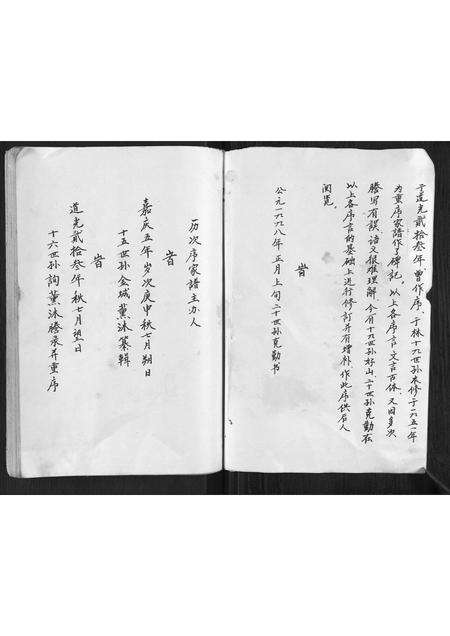 于道光贰拾叁年曾作序，于林十九世孙永修于一九五一年
为重序家谱作了碑记，以上各序言文言百体，又因多次
誊写有误，语义很难理解，今有十九世孙好山，二十世孙克勤在
以上各序言的基础上进行修订并有增补，作此序供后人
阅览。
旹
公元一九九八年正月上旬二十世孙克勤书
历次序家谱主办人
旹
嘉庆五年岁次庚申秋七月朔日
十五世孙金城薰沐纂辑
旹
道光贰拾叁年秋七月望日
十六世孙詢薰沐誊录并重序